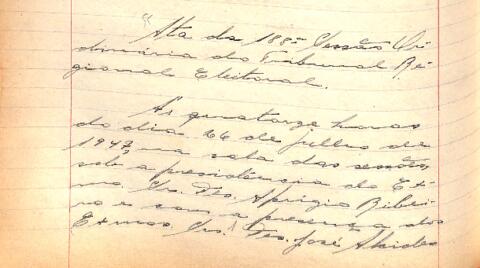 "Ata da 188ª Sessão Or-
dinária do Tribunal Re-
gional Eleitoral.
Às quatorze horas
do dia 26 de julho de
1947, na sala das sessões,
sob a presidência do Ex-
mo. Sr. Des. Aprígio Ribei-
ro e com a presença dos
Exmos. Srs. Des. José Alcides